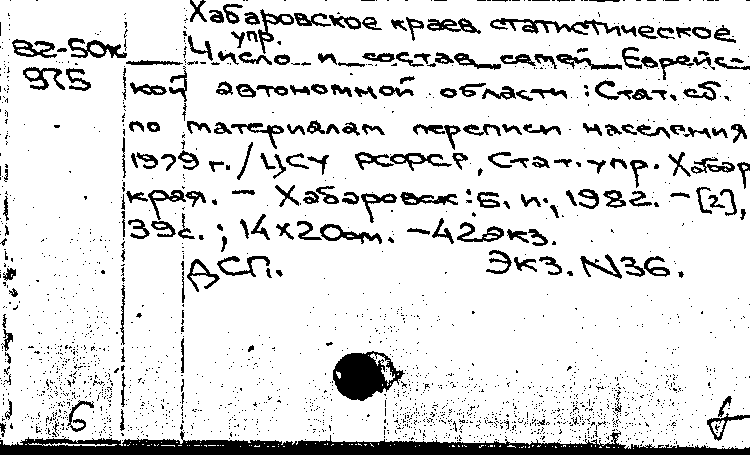 Хабаровское краев. статистическое
упр.
82-50к Число и состав семей Еврейс-
975 кой автономной области : Стат. сб.
по материалам переписи населения
1979 г. / ЦСУ РСФСР, Стат. упр. Хабар
края. — Хабаровск : Б. и., 1982. — [2],
39с. ; 14х20см. — 42экз.
ДСП. Экз. N36.
6